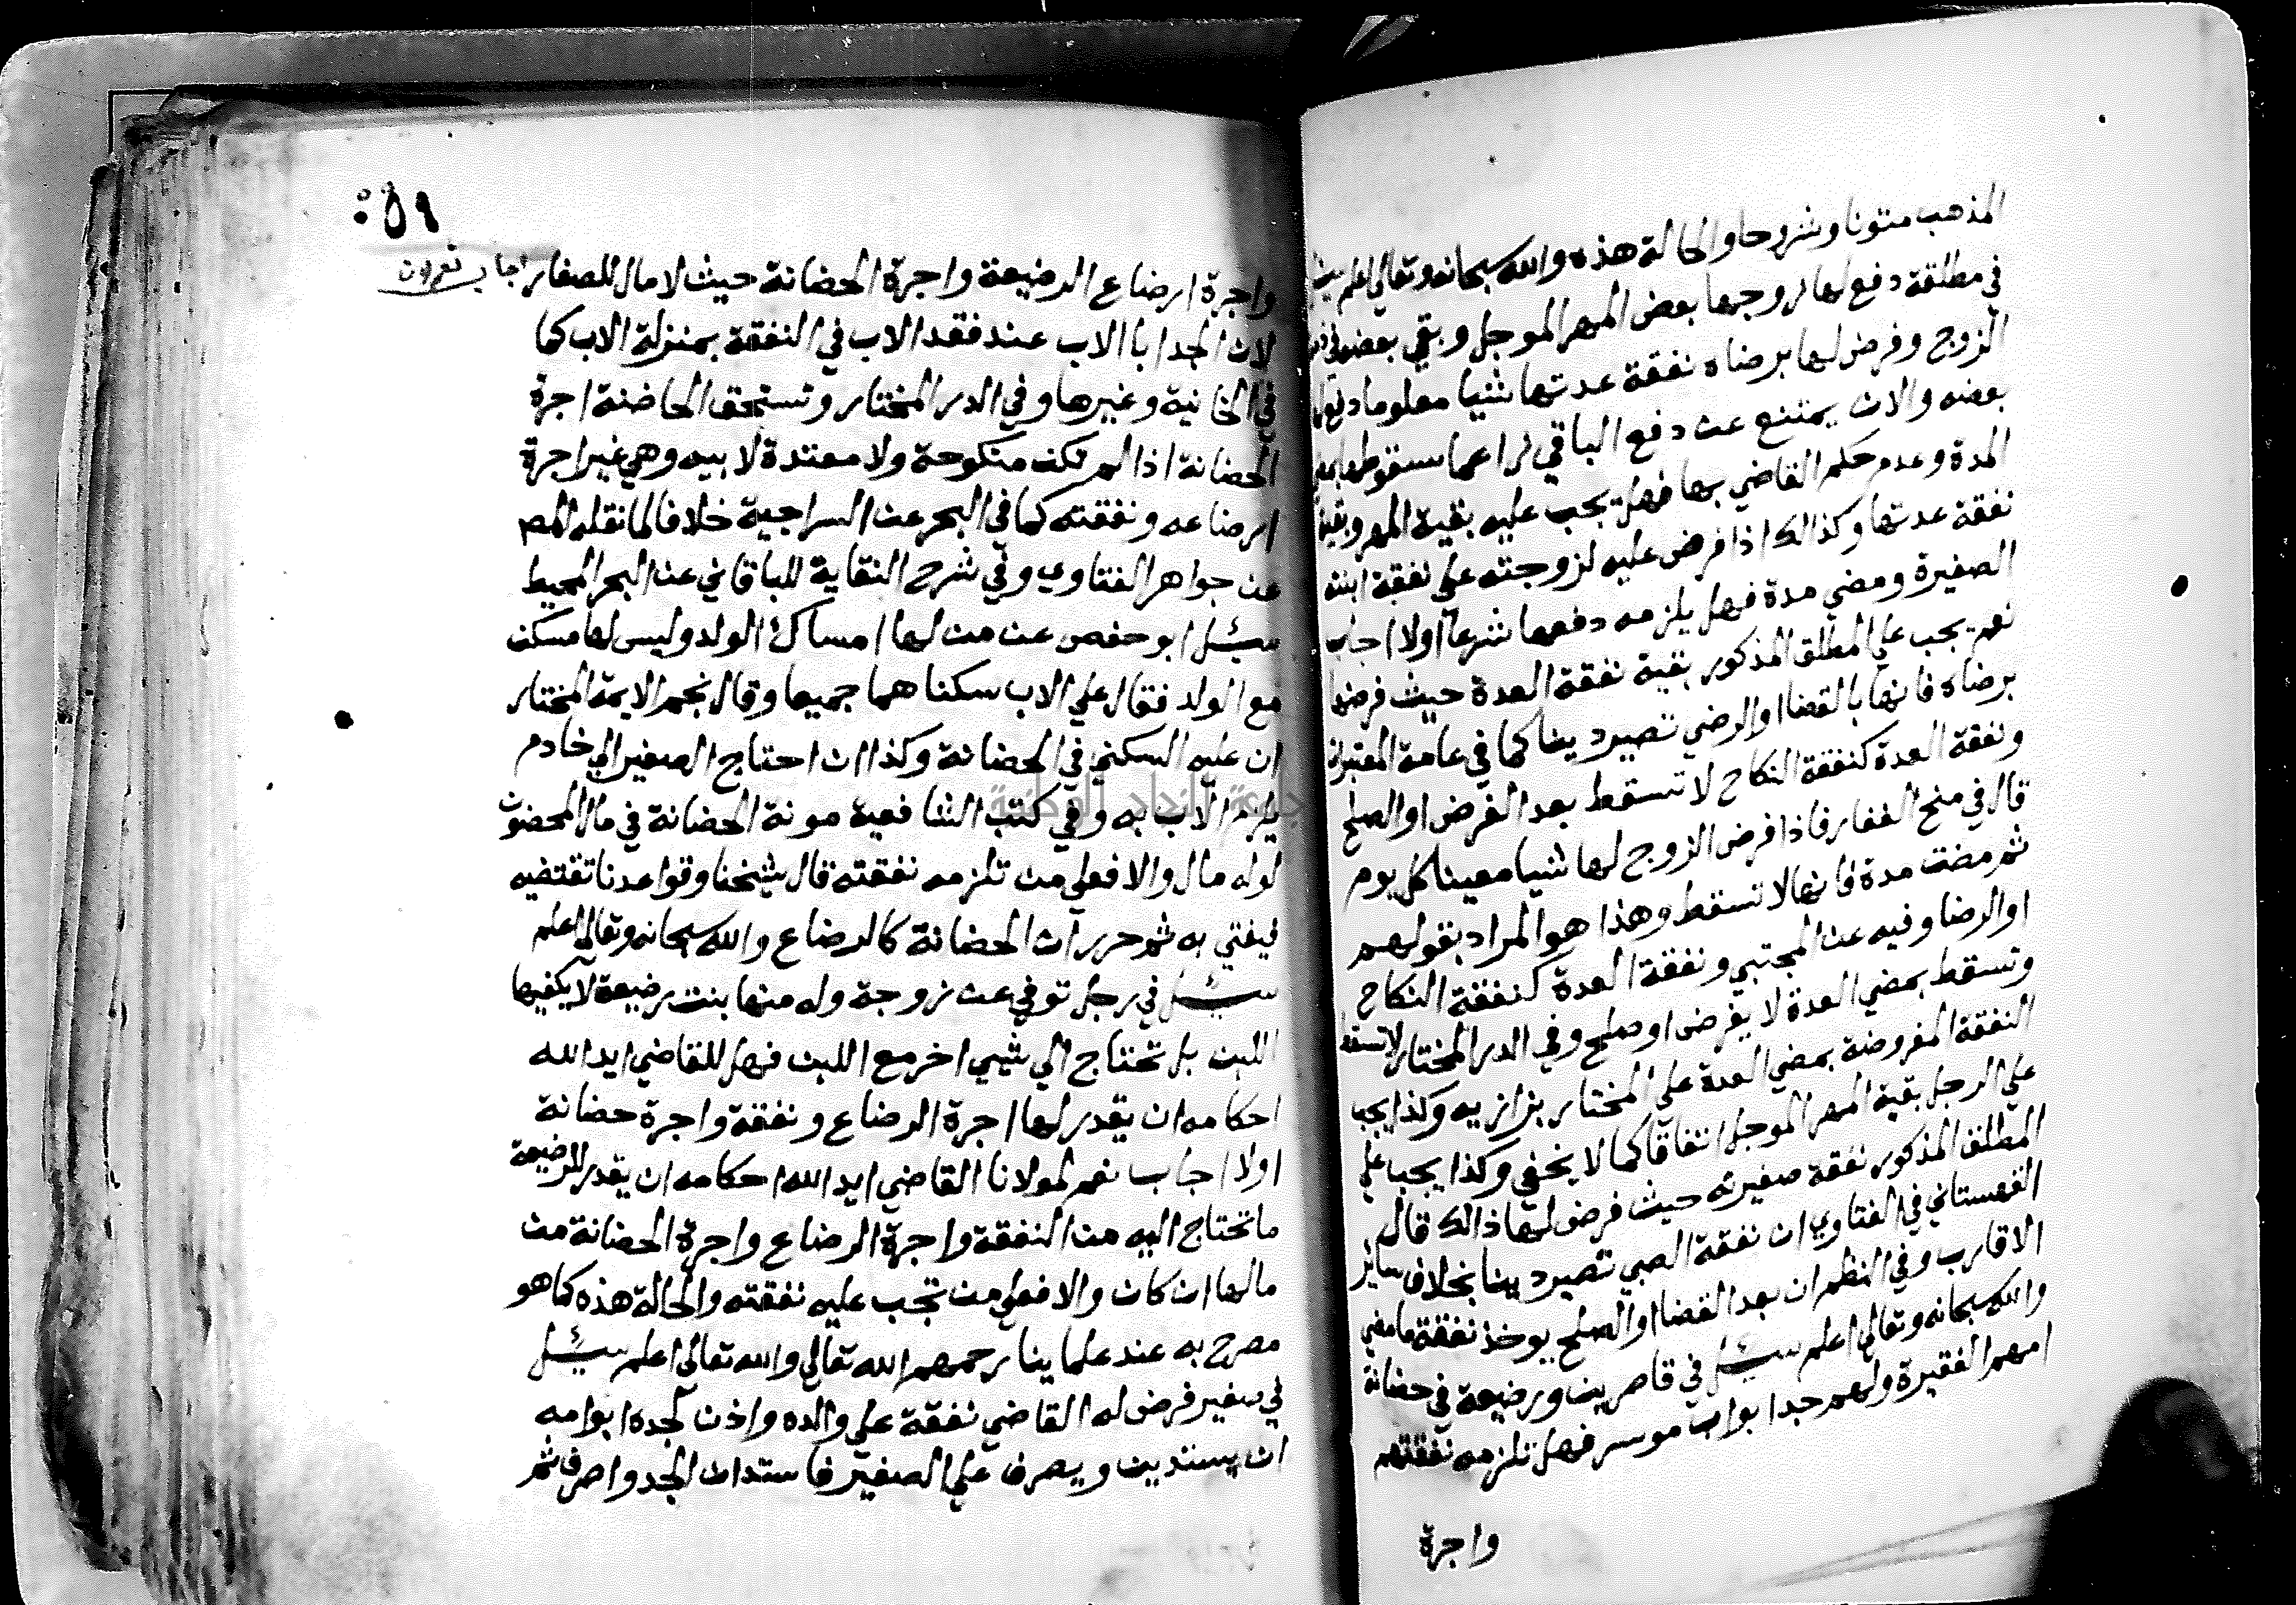 المذهب متونا وشروحا والحالة هذه والله سبحانه وتعالى اعلم سئل
في مطلقة دفع لها زوجها بعض المهر الموجل وبقي بعضه في ذمة
الزوج وفرض لها برضاه نفقة عدتها شيا معلوما دفع لها
بعضه والان يمتنع عن دفع الباقي زاعما سقوطها بمضي
المدة وعدم حكم القاضي بها فهل يجب عليه بقية المهر وبقية
نفقة عدتها وكذالك اذا فرض عليه لزوجته على نفقة ابنته
الصغيرة ومضي مدة فهل يلزمه دفعها شرعا اولا اجاب
نعم يجب علي المطلق المذكور بقية نفقة العدة حيث فرضها
برضاه فانها بالقضا او الرضي تصير دينا كما في عامة المعتبرات
ونفقة العدة كنفقة النكاح لا تسقط بعد الفرض او الصلح
قال في منح الغفار فاذا فرض الزوج لها شيا معينا كل يوم
ثم مضت مدة فانها لا تسقط وهذا هو المراد بقولهم
او الرضا وفيه عن المجتبي ونفقة العدة كنفقة النكاح
وتسقط بمضي العدة لا بفرض او صلح وفي الدر المختار لا تسقط
النفقة المفروضة بمضي العدة علي المختار بزازيه وكذا يجب
علي الرجل بقية المهر الموجل اتفاقا كما لا يخفي وكذا يجب علي
المطلق المذكور نفقة صغيرته حيث فرض لها ذالك قال
القهستاني في الفتاوي ان نفقة الصبي تصير دينا بخلاف ساير
الاقارب وفي النظم ان بعد القضا او الصلح يوخذ نفقة ما مضي
والله سبحانه وتعالى اعلم سئل في قاصرين ورضيعة في حضانة
امهم الفقيرة ولهم جد ابو اب موسر فهل تلزمه نفقتهم
واجرة
٥٩
واجرة ارضاع الرضيعة واجرة الحضانة حيث لا مال للصغار اجاب نعم
لان الجد ابا الاب عند فقد الاب في النفقة بمنزلة الاب كما
في الخانية وغيرها وفي الدر المختار وتستحق الحاضنة اجرة
الحضانة اذا لم تكن منكوحة ولا معتدة لابيه وهي غير اجرة
ارضاعه ونفقته كما في البحر عن السراجية خلافا لما نقله المص
عن جواهر الفتاوي وفي شرح النقاية للباقاني عن البحر المحيط
سئل ابو حفص عن من لها امساك الولد وليس لها مسكن
مع الولد فقال علي الاب سكناهما جميعا وقال نجم الايمة المختار
ان عليه السكني في الحضانة وكذا ان احتاج الصغير الي خادم
يلزم الاب به وفي كتب الشافعية مونة الحضانة في مال المحضون
لو له مال والا فعلي من تلزمه نفقته قال شيخنا وقواعدنا تقتضيه
فيفتي به ثم حرر ان الحضانة كالرضاع والله سبحانه وتعالى اعلم
سئل في رجل توفي عن زوجة وله منها بنت رضيعة لا يكفيها
اللبن بل تحتاج الي شيي اخر مع اللبن فهل للقاضي ايد الله
احكامه ان يقدر لها اجرة الرضاع ونفقة واجرة حضانة
اولا اجاب نعم لمولانا القاضي ايد الله احكامه ان يقدر للرضيعة
ما تحتاج اليه من النفقة واجرة الرضاع واجرة الحضانة من
مالها ان كان والا فعلي من تجب عليه نفقته والحالة هذه كما هو
مصرح به عند علماينا رحمهم الله تعالي والله تعالي اعلم سئل
في صغير فرض له القاضي نفقة علي والده واذن لجده ابو امه
ان يستدين ويصرف علي الصغير فاستدان الجد واصرف ثم
جامعة النجاح الوطنية